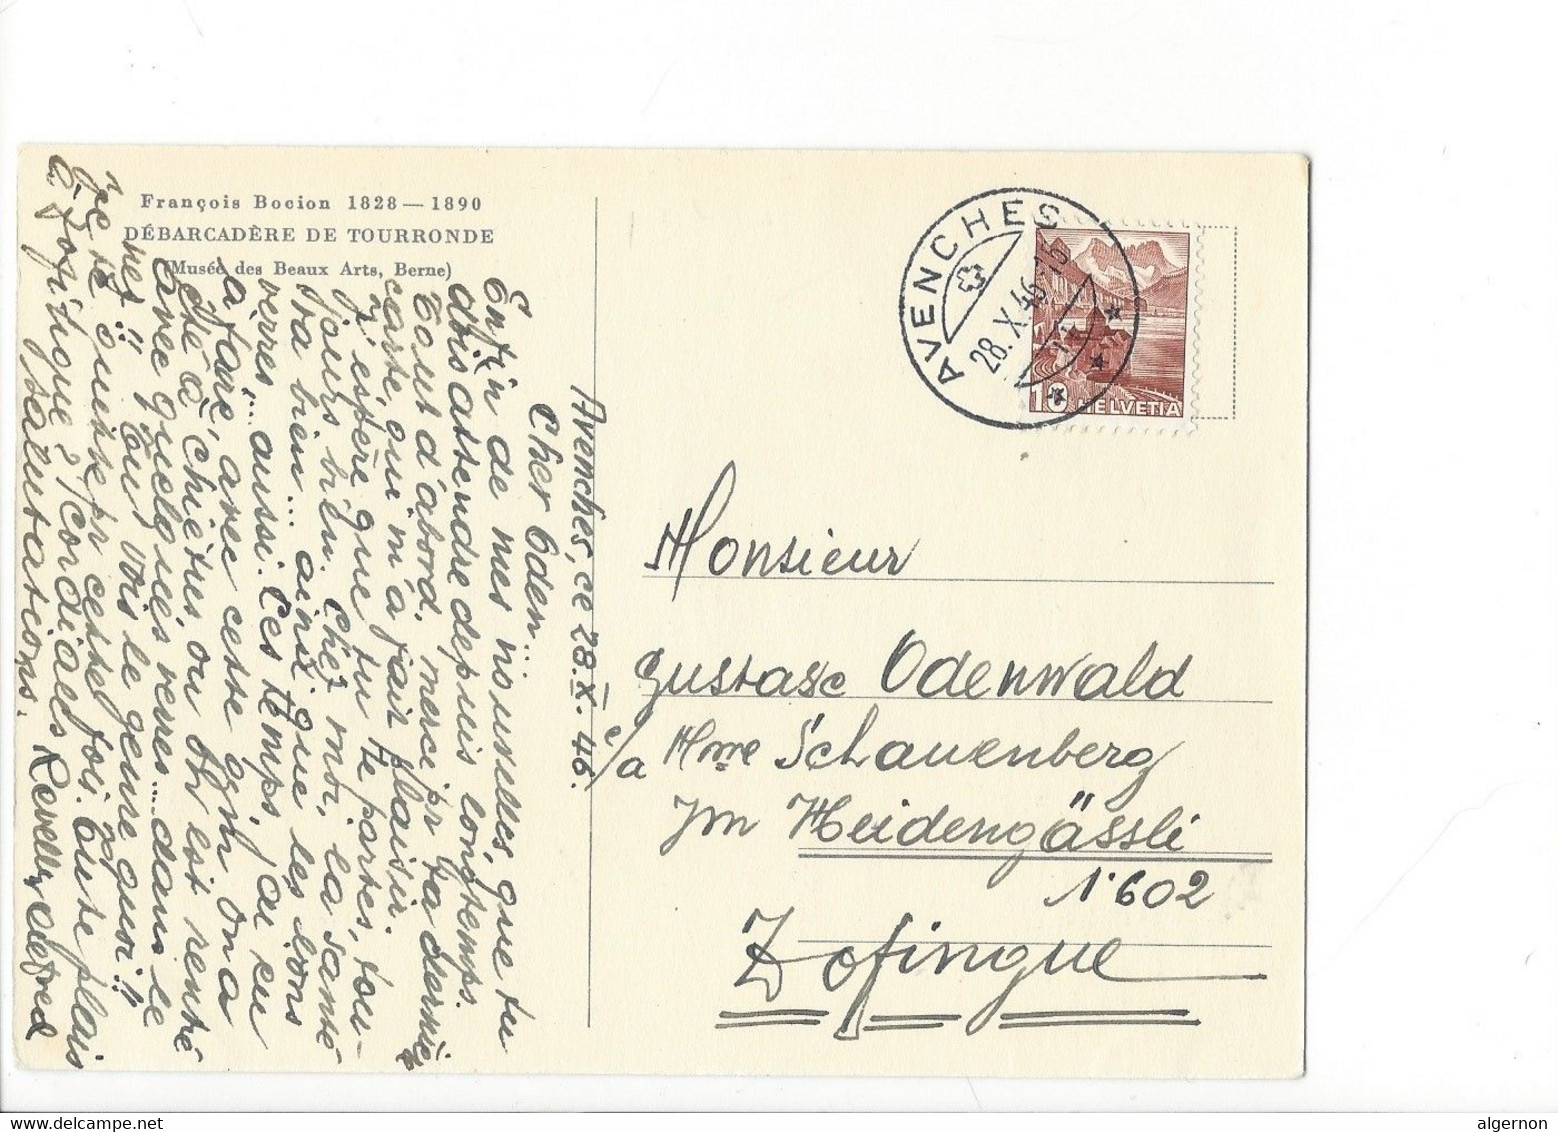 François Bocion 1828 — 1890
DÉBARCADÈRE DE TOURRONDE
(Musée des Beaux Arts, Berne)
AVENCHES
28.X.46-15
10 HELVETIA
Avenches, ce 28.X.46.
Cher Oden...
Enfin de mes nouvelles, que tu
dois attendre depuis longtemps.
Tout d'abord, merci pr ta dernière
carte, qui m'a fait plaisir.
J'espère que tu te portes, tou-
jours bien. Chez moi, la santé
va bien... ainsi que les bons
verres... aussi. Ces temps, j'ai eu
à faire, avec cette gym. On a
été à Chiètres où on est rentré
avec quelques verres.... dans le
nez!! Tu vois le genre quoi!!
Je te quitte pr cette fois. Tu te plais
à Zofingue? Cordiales
salutations.
Alfred
Monsieur
Gustave Odenwald
c/a Mme Schauenberg
Im Heidengässli
602
Zofingue
algernon